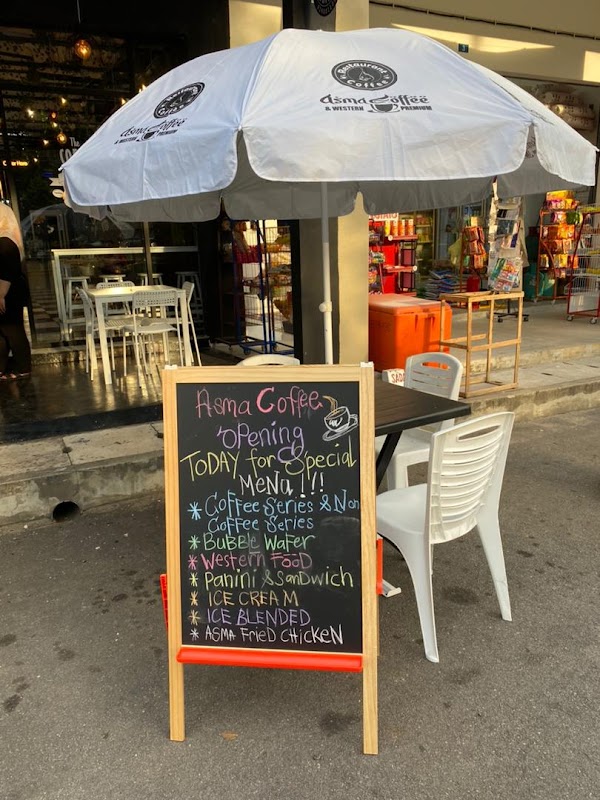 Restaurant
Coffee
Asma Coffëë
& WESTERN PREMIUM
Asma Coffëë
& WESTERN PREMIUM
The
Asma Coffee
opening
ToDAY for Special
MeNu!!!
* Coffee Series & Non
Coffee Series
* BuBBLe WaFer
* WesterN FooD
* Panini & SanDwich
* ICE CREAM
* ICE BLENDED
* ASMA FrieD CHICKeN